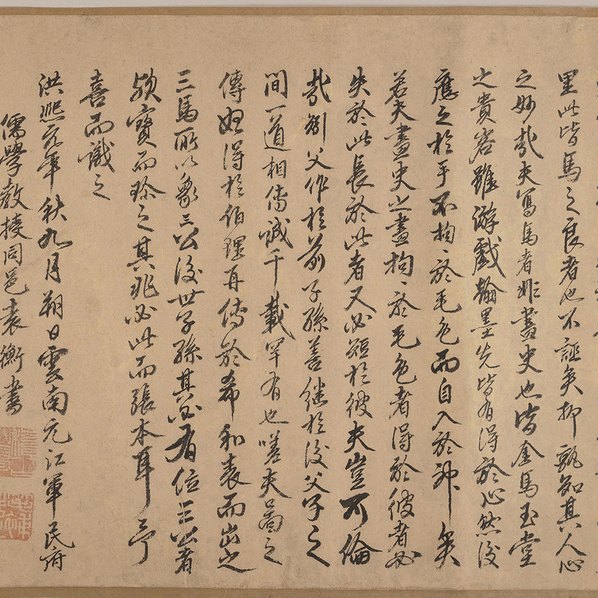 里此皆馬之良者也不誣矣抑孰知其人心
之妙哉夫寫馬者非畫史也皆金馬玉堂
之貴客雖游戲翰墨先皆有得於心然後
應之於手不拘於毛色而自入於神矣
若夫畫史之畫拘〻於毛色者得於彼者必
失於此長於此者又必短於彼夫豈可倫
哉列父作於前子孫善繼於後父子之
間一道相傳誠千載罕有也嗟夫啚之
傳始得於伯理再傳於希和表而出之
三馬所以象三公後世子孫其必有位三公者
歟寶而珍之其兆必此而張本耳予
喜而識之
洪熙元年秋九月朔日雲南元江軍民府
儒學教授同邑袁衡書